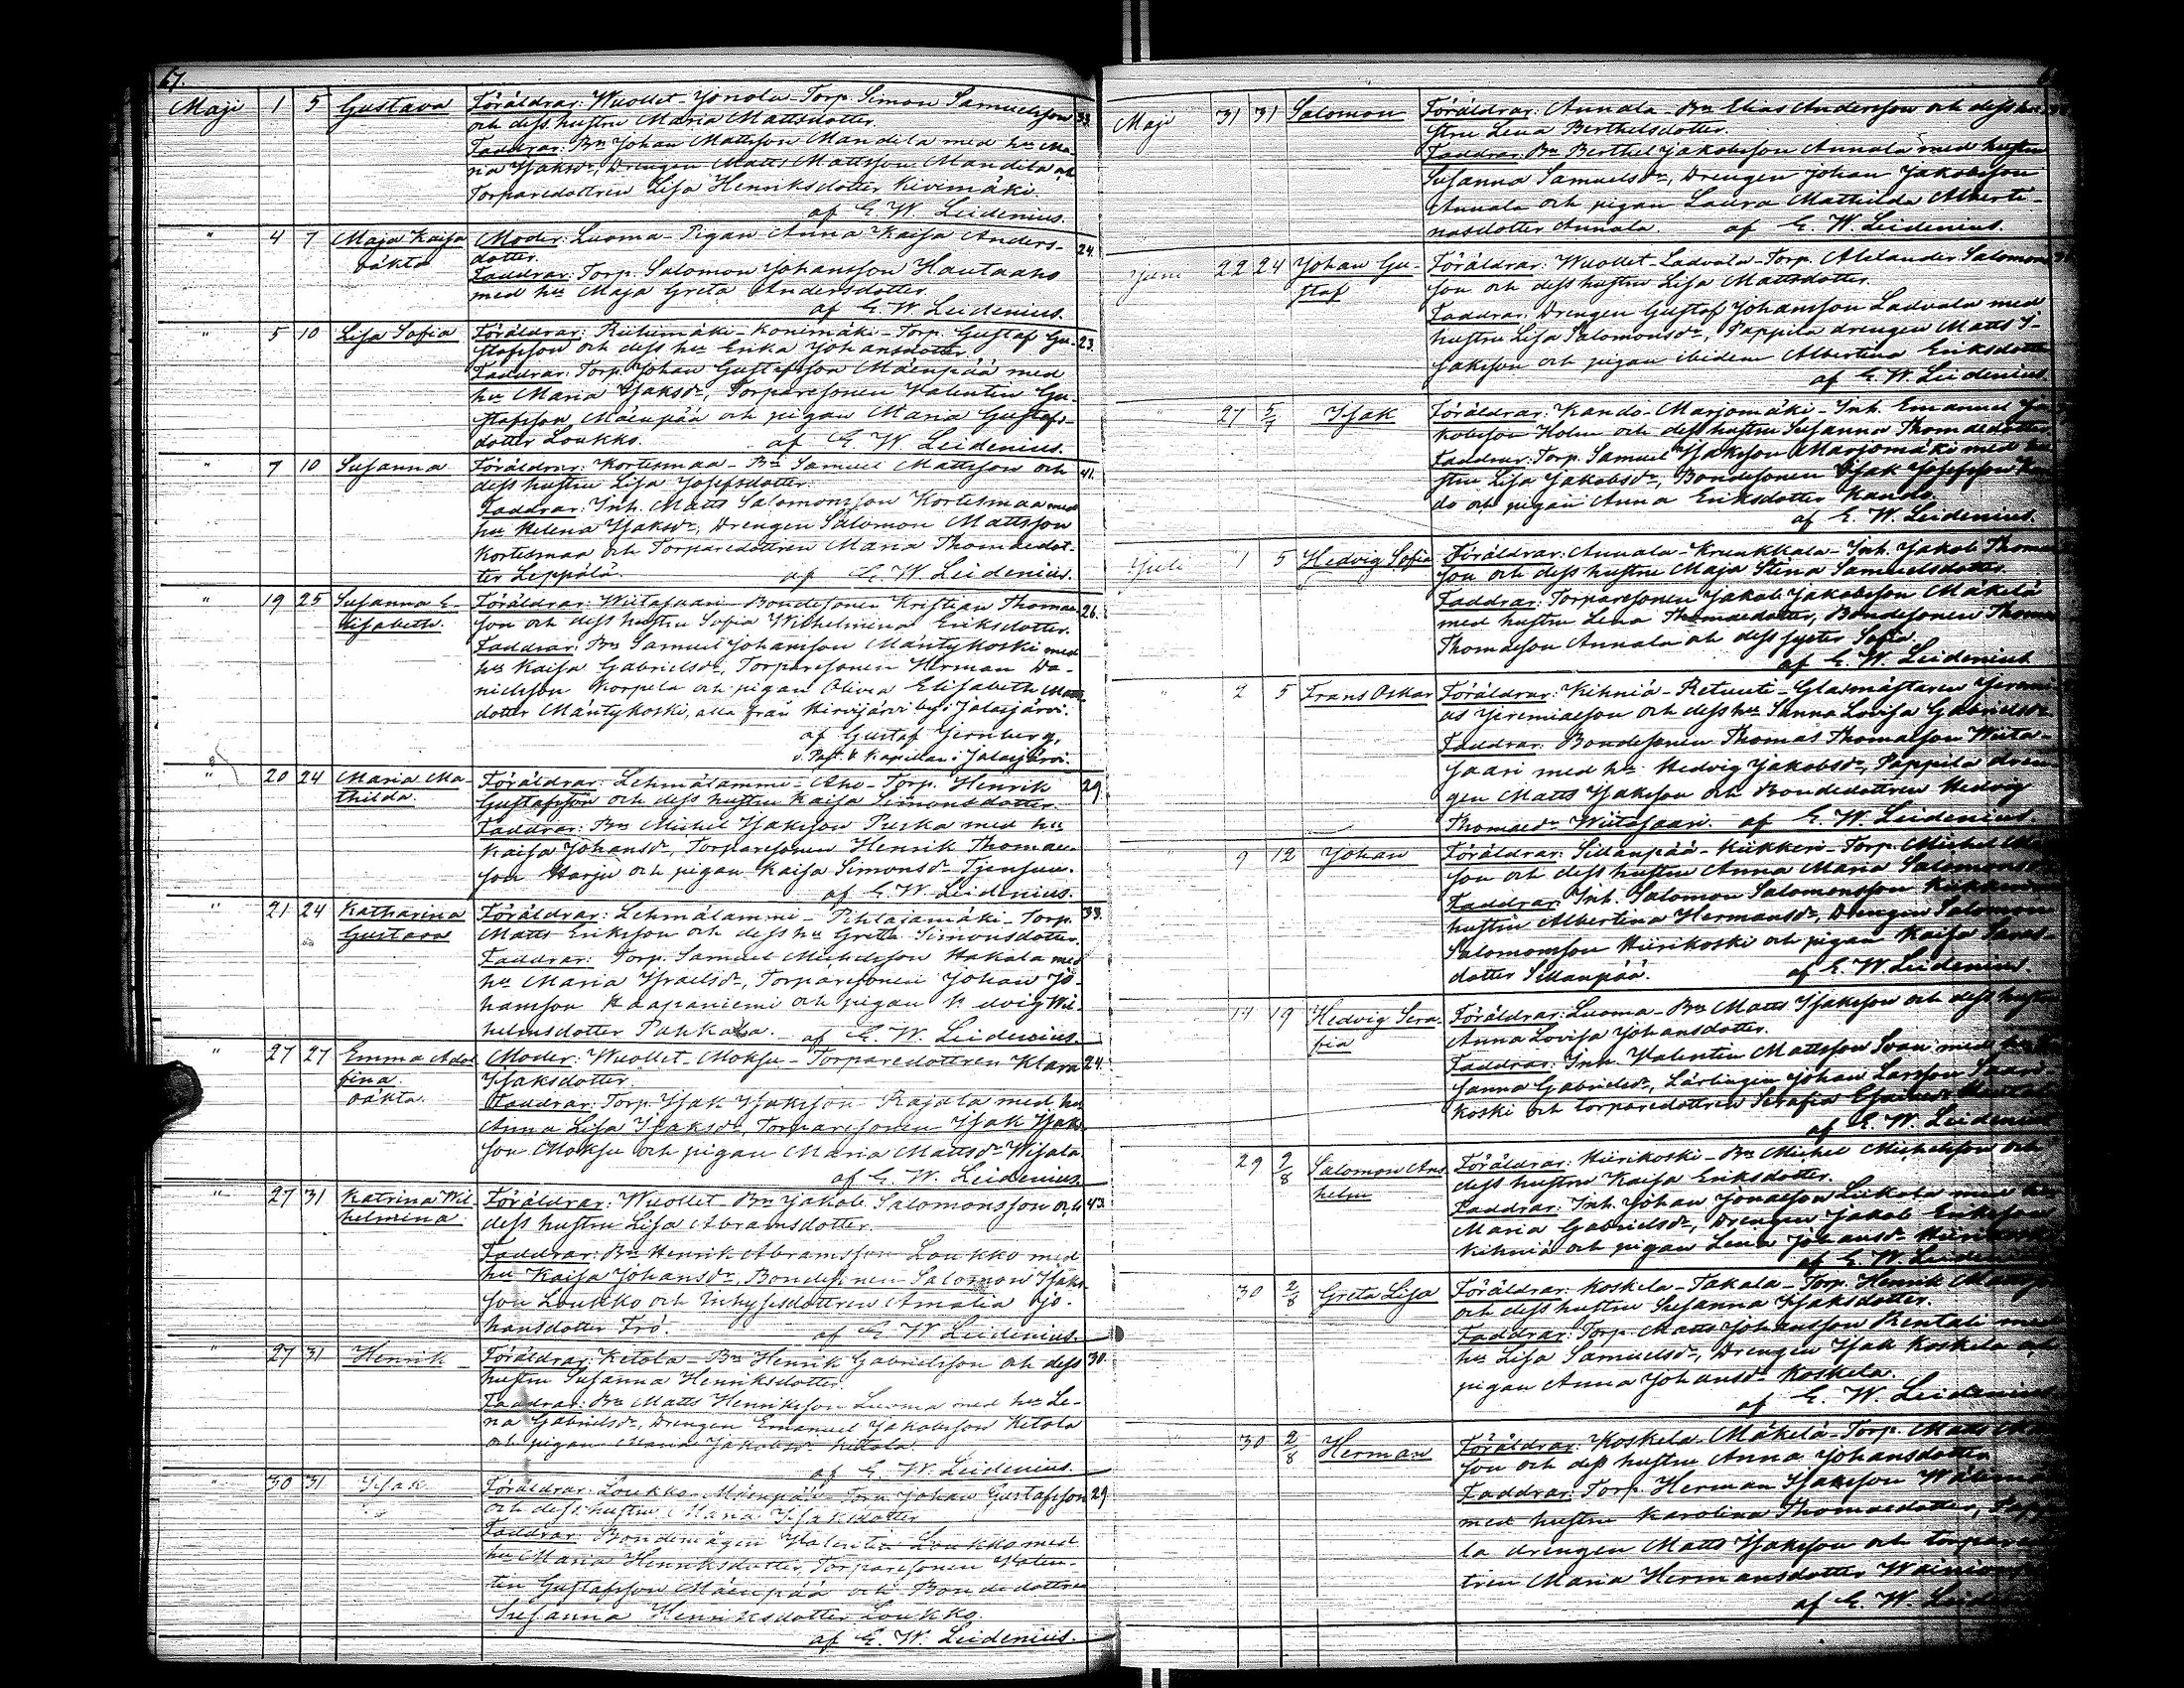 67.
Maji 1 5 Gustava Föräldrar: Wuollet-Jonola-Torp. Simon Samuelsson 33.
och dess hustru Maria Mattsdotter.
Faddrar: Bn Johan Mattsson Mandila med hu Ma-
ria Isaksdr, Drengen Matts Mattsson Mandila och
Torparedottren Lisa Henriksdotter Kivimäki
af E. W. Leidenius.
" 4 7 Maja Kaisa Moder: Luoma-Pigan Anna Kaisa Anders- 24.
oäkta dotter.
Faddrar: Torp. Salomon Johansson Hautaaho
med hu Maja Greta Andersdotter.
af E. W. Leidenius.
" 5 10 Lisa Sofia Föräldrar: Riihimäki-Konimäki-Torp. Gustaf Gu- 23.
stafsson och dess hu Erika Johansdotter
Faddrar: Torp. Johan Gustafsson Mäenpää med
hu Maria Isaksdr, Torparesonen Valentin Gu-
stafsson Mäenpää och pigan Maria Gustafs-
dotter Loukko. af E. W. Leidenius.
" 7 10 Susanna Föräldrar: Kortesmaa-Bn Samuel Mattsson och 41.
dess hustru Lisa Josefsdotter.
Faddrar: Inh. Matts Salomonsson Kortesmaa med
hu Helena Isaksdr, Drengen Salomon Mattsson
Kortesmaa och Torparedottren Maria Thomaedot-
ter Leppälä. af E. W. Leidenius.
" 19 25 Susanna E- Föräldrar: Wiitasaari-Bondesonen Kristian Thomae- 26.
lisabeth. son och dess hustru Sofia Wilhelmina Eriksdotter.
Faddrar: Bn Samuel Johansson Mäntykoski med
hu Kaisa Gabrielsdr, Torparesonen Herman Da-
nielsson Korpela och pigan Olivia Elisabeth Matts-
dotter Mäntykoski, alla från Hirvijärvi by i Jalasjärvi.
af Gustaf Jernberg,
v. Past. & Kapellan i Jalasjärvi.
" 20 24 Maria Ma- Föräldrar: Lehmälammi-Aho-Torp. Henrik 29.
thilda. Gustafsson och dess hustru Kaisa Simonsdotter.
Faddrar: Bn Michel Isaksson Puska med hu
Kaisa Johansdr, Torparesonen Henrik Thomae-
son Harju och pigan Kaisa Simonsdr
af E. W. Leidenius.
" 21 24 Katharina Föräldrar: Lehmälammi-Pihlajamäki-Torp. 33.
Gustava Matts Eriksson och dess hu Greta Simonsdotter.
Faddrar: Torp. Samuel Michelsson Hakala med
hu Maria Israelsdr, Torparesonen Johan Jo-
hansson Haapaniemi och pigan Hedvig Wil-
helmsdotter Pakkala. af E. W. Leidenius.
" 27 27 Emma Adol- Moder: Wuollet-Moksu-Torparedottren Klara 24.
fina. Isaksdotter.
oäkta. Faddrar: Torp. Isak Isaksson Rajala med hu
Anna Lisa Isaksdr, Torparesonen Isak Isaks-
son Moksu och pigan Maria Mattsdr Wisala
af E. W. Leidenius.
" 27 31 Katrina Wil- Föräldrar: Wuollet-Bn Jakob Salomonsson och 43.
helmina dess hustru Lisa Abramsdotter.
Faddrar: Bn Henrik Abramsson Loukko med
hu Kaisa Johansdr, Bondesonen Salomon Isaks-
son Loukko och Inhysesdottren Amalia Jo-
hansdotter Frö. af E. W. Leidenius.
" 27 31 Henrik Föräldrar: Ketola-Bn Henrik Gabrielsson och dess 30.
hustru Susanna Henriksdotter.
Faddrar: Bn Matts Henriksson Luoma med hu Le-
na Gabrielsdr, Drengen Emanuel Jakobsson Ketola
och pigan Maria Jakobsdr Ketola.
af E. W. Leidenius.
" 30 31 Isak Föräldrar: Loukko-Mäenpää-Torp. Johan Gustafsson 29.
och dess hustru Maria Isaksdotter
Faddrar: Bondemågen Valentin Loukko med
hu Maria Henriksdotter, Torparesonen Valen-
tin Gustafsson Mäenpää och Bondedottren
Susanna Henriksdotter Loukko.
af E. W. Leidenius.
Maji 31 31 Salomon Föräldrar: Annala-Bn Elias Andersson och dess hu-
stru Lena Berthelsdotter.
Faddrar: Bn Berthel Jakobsson Annala med hustru
Susanna Samuelsdr, Drengen Johan Jakobsson
Annala och pigan Laura Mathilda Alberti-
nasdotter Annala. af E. W. Leidenius.
Juni 22 24 Johan Gu- Föräldrar: Wuollet-Ladvala-Torp. Alexander Salomons-
staf son och dess hustru Lisa Mattsdotter.
Faddrar: Drengen Gustaf Johansson Ladvala med
hustru Lisa Salomonsdr, Pappila drengen Matts I-
saksson och pigan ibidem Albertina Eriksdotter
af E. W. Leidenius.
" 27 5/7 Isak Föräldrar: Kando-Marjomäki-Inh. Emanuel Ja-
kobsson Holm och dess hustru Susanna Thomaedotter
Faddrar: Torp. Samuel Isaksson Marjomäki med hu-
stru Lisa Jakobsdr, Bondesonen Isak Josefsson Kan-
do och pigan Anna Eriksdotter Kando.
af E. W. Leidenius.
Juli 1 5 Hedvig Sofia Föräldrar: Annala-Krunkkala-Inh. Jakob Thomae-
son och dess hustru Maja Stina Samuelsdotter.
Faddrar: Torparesonen Jakob Jakobsson Mäkelä
med hustru Lena Thomaedotter, Bondesonen Thomas
Thomaeson Annala och dess syster Sofia.
af E. W. Leidenius
" 2 5 Frans Oskar Föräldrar: Kihniä-Retuuti-Glasmästaren Jeremi-
as Jeremiaeson och dess hu Sanna Lovisa Gabrielsdr.
Faddrar: Bondesonen Thomas Thomaeson Wiita-
saari med hu Hedvig Jakobsdr, Pappila dren-
gen Matts Isaksson och Bondedottren Hedvig
Thomaedr Wiitasaari. af E. W. Leidenius.
" 9 12 Johan Föräldrar: Sillanpää-Kiikkeri-Torp. Michel
son och dess hustru Anna Maria Salomonsdotter
Faddrar: Inh. Salomon Salomonsson
hustru Albertina Hermansdr, Drengen Salomon
Salomonsson Hirikoski och pigan Kaisa
dotter Sillanpää. af E. W. Leidenius.
19 Hedvig Sera- Föräldrar: Luoma-Bn Matts Isaksson och dess hustru
fia Anna Lovisa Johansdotter.
Faddrar: Inh. Valentin Mattsson Svan med
sanna Gabrielsdr, Lärlingen Johan Larsson Saari-
koski och torparedottren Serafia
af E. W. Leidenius
29 2/8 Salomon Ans- Föräldrar: Hirikoski-Bn Michel Michelsson och
helm dess hustru Kaisa Eriksdotter.
Faddrar: Inh. Johan Jonaeson Lukola med hu
Maria Gabrielsdr, Drengen Jakob Eriksson
Kihniä och pigan Lena Johansdr
af E. W. Leidenius
30 2/8 Greta Lisa Föräldrar: Koskela-Takala-Torp. Henrik
och dess hustru Susanna Isaksdotter.
Faddrar: Torp. Matts Johansson Rentali med
hu Lisa Samuelsdr, Drengen Isak Koskela och
pigan Anna Johansdr Koskela.
af E. W. Leidenius
30 2/8 Herman Föräldrar: Koskela-Mäkelä-Torp. Matts
son och dess hustru Anna Johansdotter
Faddrar: Torp. Herman Isaksson
med hustru Karolina Thomaedotter, Pappi-
la drengen Matts Isaksson och torpared
tren Maria Hermansdotter
af E. W. Leidenius